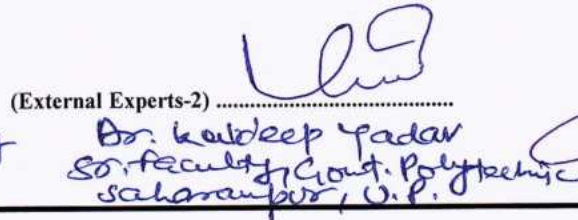 (External Experts-2) ............................................
Dr. Kuldeep Yadav
Sr. Faculty, Govt. Polytechnic
Saharanpur, U.P.